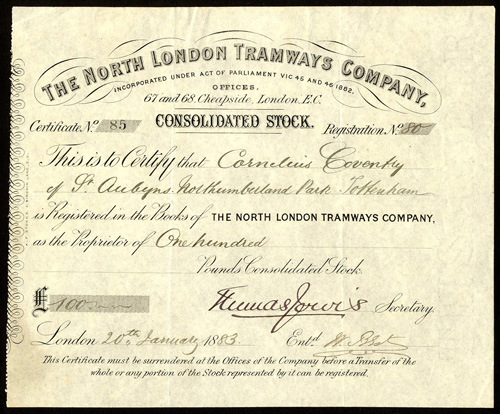 THE NORTH LONDON TRAMWAYS COMPANY,
INCORPORATED UNDER ACT OF PARLIAMENT VIC 45 AND 46 1882.
OFFICES.
67 and 68. Cheapside, London. E.C.
Certificate. No 85 CONSOLIDATED STOCK. Registration. No 80
This is to Certify that Cornelius Coventry
of St Aubyns. Northumberland Park. Tottenham
is Registered in the Books of THE NORTH LONDON TRAMWAYS COMPANY,
as the Proprietor of One hundred
Pounds Consolidated Stock.
£ 100 Secretary.
London 20th January 1883. Entd
This Certificate must be surrendered at the Offices of the Company before a Transfer of the
whole or any portion of the Stock represented by it can be registered.